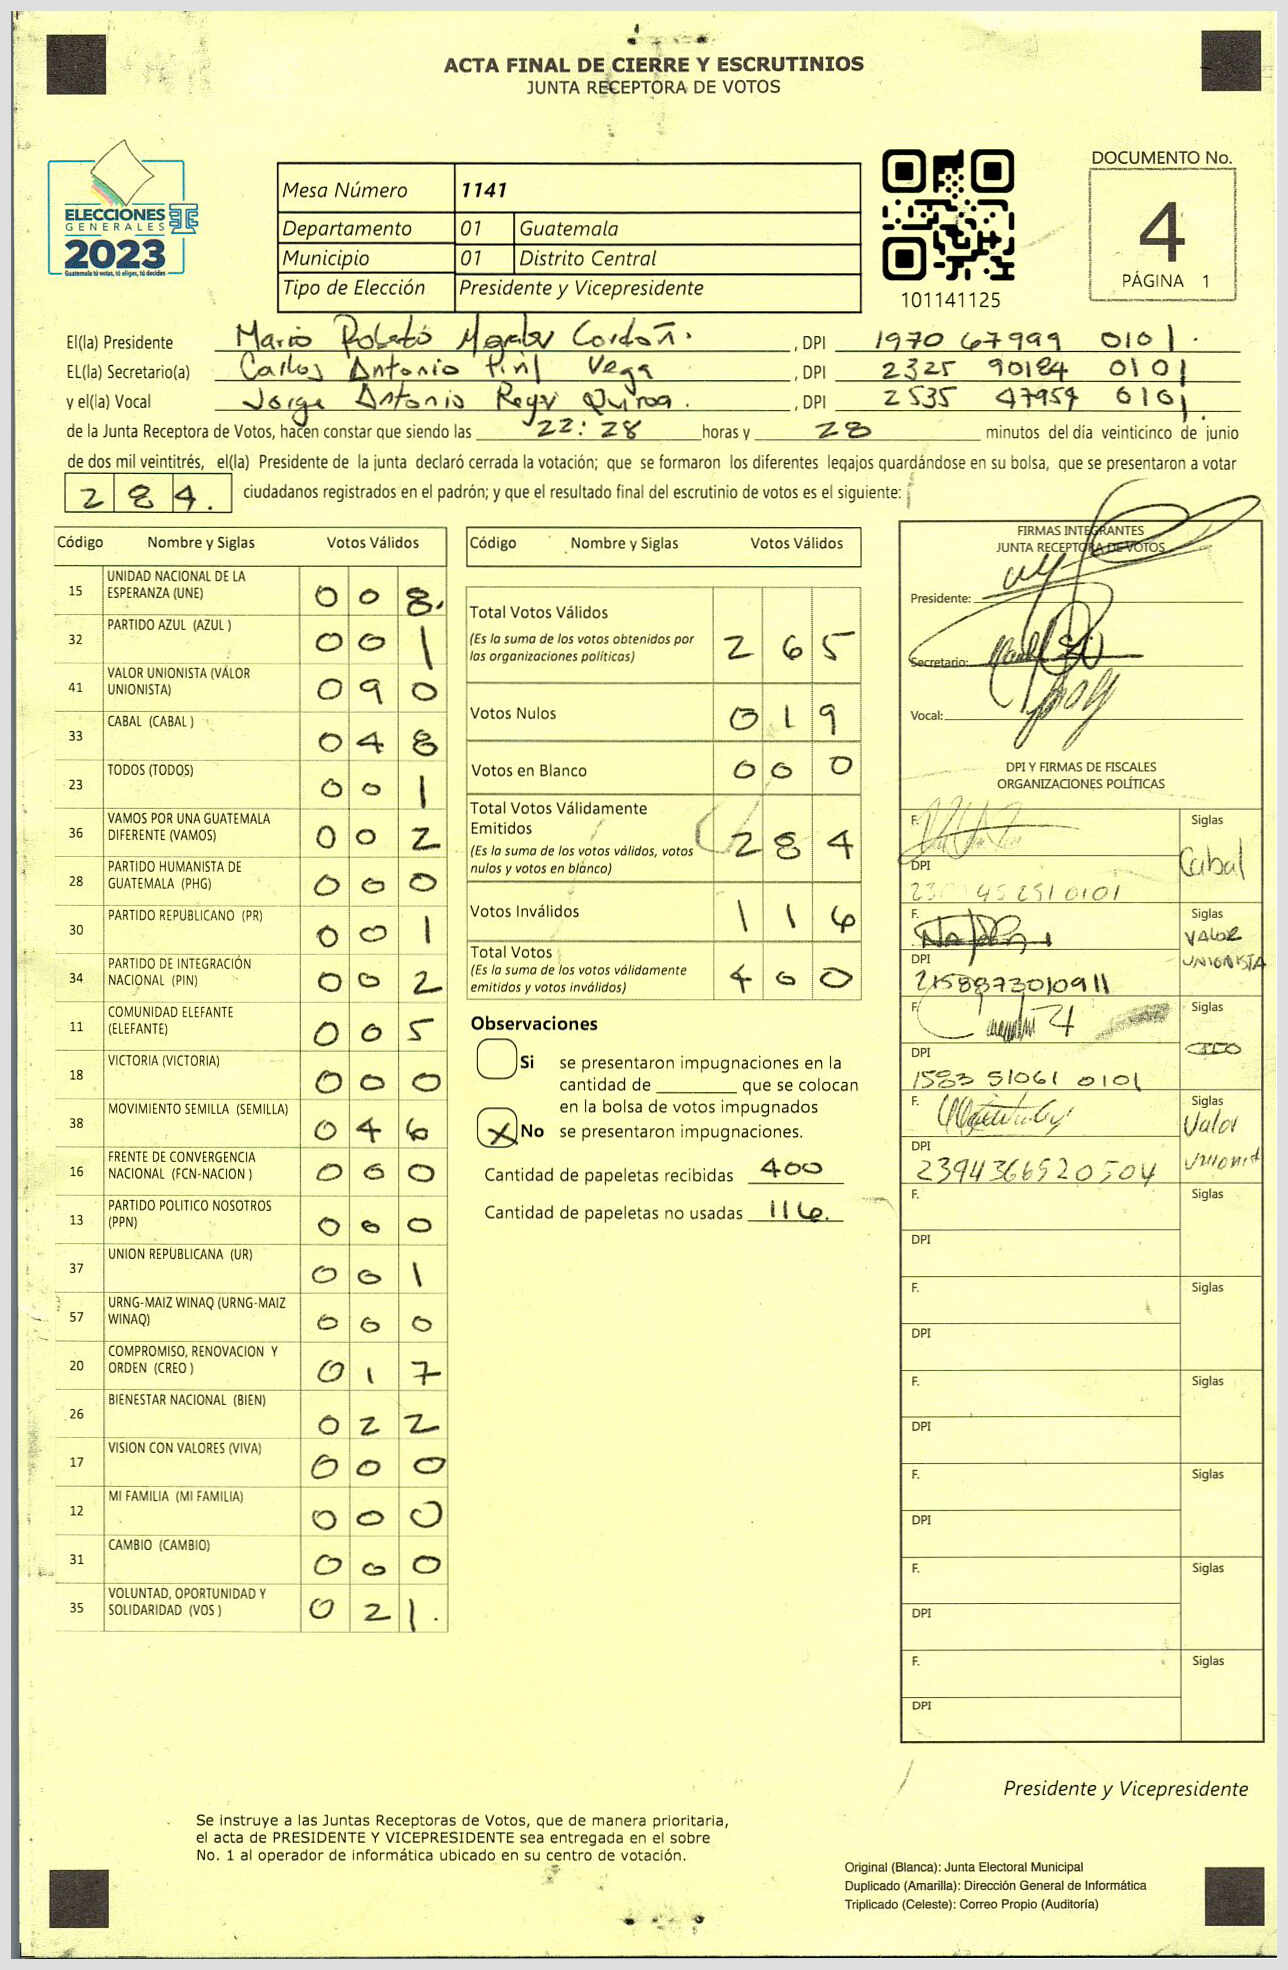 ACTA FINAL DE CIERRE Y ESCRUTINIOS
JUNTA RECEPTORA DE VOTOS
ELECCIONES
GENERALES
2023
Guatemala tú votas, tú eliges, tú decides
Mesa Número 1141
Departamento 01 Guatemala
Municipio 01 Distrito Central
Tipo de Elección Presidente y Vicepresidente
101141125
DOCUMENTO No.
4
PÁGINA 1
El(la) Presidente Mario Roberto Morales Cordón. , DPI 1970 67999 0101.
EL(la) Secretario(a) Carlos Antonio Vega , DPI 2325 90184 0101
y el(la) Vocal Jorge Antonio Quiroa. , DPI 2535 47954 0101.
de la Junta Receptora de Votos, hacen constar que siendo las 22:28 horas y 28 minutos del día veinticinco de junio
de dos mil veintitrés, el(la) Presidente de la junta declaró cerrada la votación; que se formaron los diferentes legajos guardándose en su bolsa, que se presentaron a votar
284. ciudadanos registrados en el padrón; y que el resultado final del escrutinio de votos es el siguiente:
Código Nombre y Siglas Votos Válidos
15 UNIDAD NACIONAL DE LA ESPERANZA (UNE) 0 0 8.
32 PARTIDO AZUL (AZUL ) 0 0 1
41 VALOR UNIONISTA (VALOR UNIONISTA) 0 9 0
33 CABAL (CABAL ) 0 4 8
23 TODOS (TODOS) 0 0 1
36 VAMOS POR UNA GUATEMALA DIFERENTE (VAMOS) 0 0 2
28 PARTIDO HUMANISTA DE GUATEMALA (PHG) 0 0 0
30 PARTIDO REPUBLICANO (PR) 0 0 1
34 PARTIDO DE INTEGRACIÓN NACIONAL (PIN) 0 0 2
11 COMUNIDAD ELEFANTE (ELEFANTE) 0 0 5
18 VICTORIA (VICTORIA) 0 0 0
38 MOVIMIENTO SEMILLA (SEMILLA) 0 4 6
16 FRENTE DE CONVERGENCIA NACIONAL (FCN-NACION ) 0 0 0
13 PARTIDO POLITICO NOSOTROS (PPN) 0 0 0
37 UNION REPUBLICANA (UR) 0 0 1
57 URNG-MAIZ WINAQ (URNG-MAIZ WINAQ) 0 0 0
20 COMPROMISO, RENOVACION Y ORDEN (CREO ) 0 1 7
26 BIENESTAR NACIONAL (BIEN) 0 2 2
17 VISION CON VALORES (VIVA) 0 0 0
12 MI FAMILIA (MI FAMILIA) 0 0 0
31 CAMBIO (CAMBIO) 0 0 0
35 VOLUNTAD, OPORTUNIDAD Y SOLIDARIDAD (VOS ) 0 2 1.
Código Nombre y Siglas Votos Válidos
Total Votos Válidos 2 6 5
(Es la suma de los votos obtenidos por
las organizaciones políticas)
Votos Nulos 0 1 9
Votos en Blanco 0 0 0
Total Votos Válidamente
Emitidos 2 8 4
(Es la suma de los votos válidos, votos
nulos y votos en blanco)
Votos Inválidos 1 1 6
Total Votos 4 0 0
(Es la suma de los votos válidamente
emitidos y votos inválidos)
Observaciones
Si se presentaron impugnaciones en la
cantidad de ________ que se colocan
en la bolsa de votos impugnados
X No se presentaron impugnaciones.
Cantidad de papeletas recibidas 400
Cantidad de papeletas no usadas 116.
FIRMAS INTEGRANTES
JUNTA RECEPTORA DE VOTOS
Presidente:
Secretario:
Vocal:
DPI Y FIRMAS DE FISCALES
ORGANIZACIONES POLÍTICAS
F. Siglas
Cabal
DPI
F. Siglas
VALOR
UNIONISTA
DPI
2158873010911
F. Siglas
DPI
1583 51061 0101
F. Siglas
Valor
Unionist
DPI
2394366520504
F. Siglas
DPI
F. Siglas
DPI
F. Siglas
DPI
F. Siglas
DPI
F. Siglas
DPI
F. Siglas
DPI
Presidente y Vicepresidente
Se instruye a las Juntas Receptoras de Votos, que de manera prioritaria,
el acta de PRESIDENTE Y VICEPRESIDENTE sea entregada en el sobre
No. 1 al operador de informática ubicado en su centro de votación.
Original (Blanca): Junta Electoral Municipal
Duplicado (Amarilla): Dirección General de Informática
Triplicado (Celeste): Correo Propio (Auditoría)